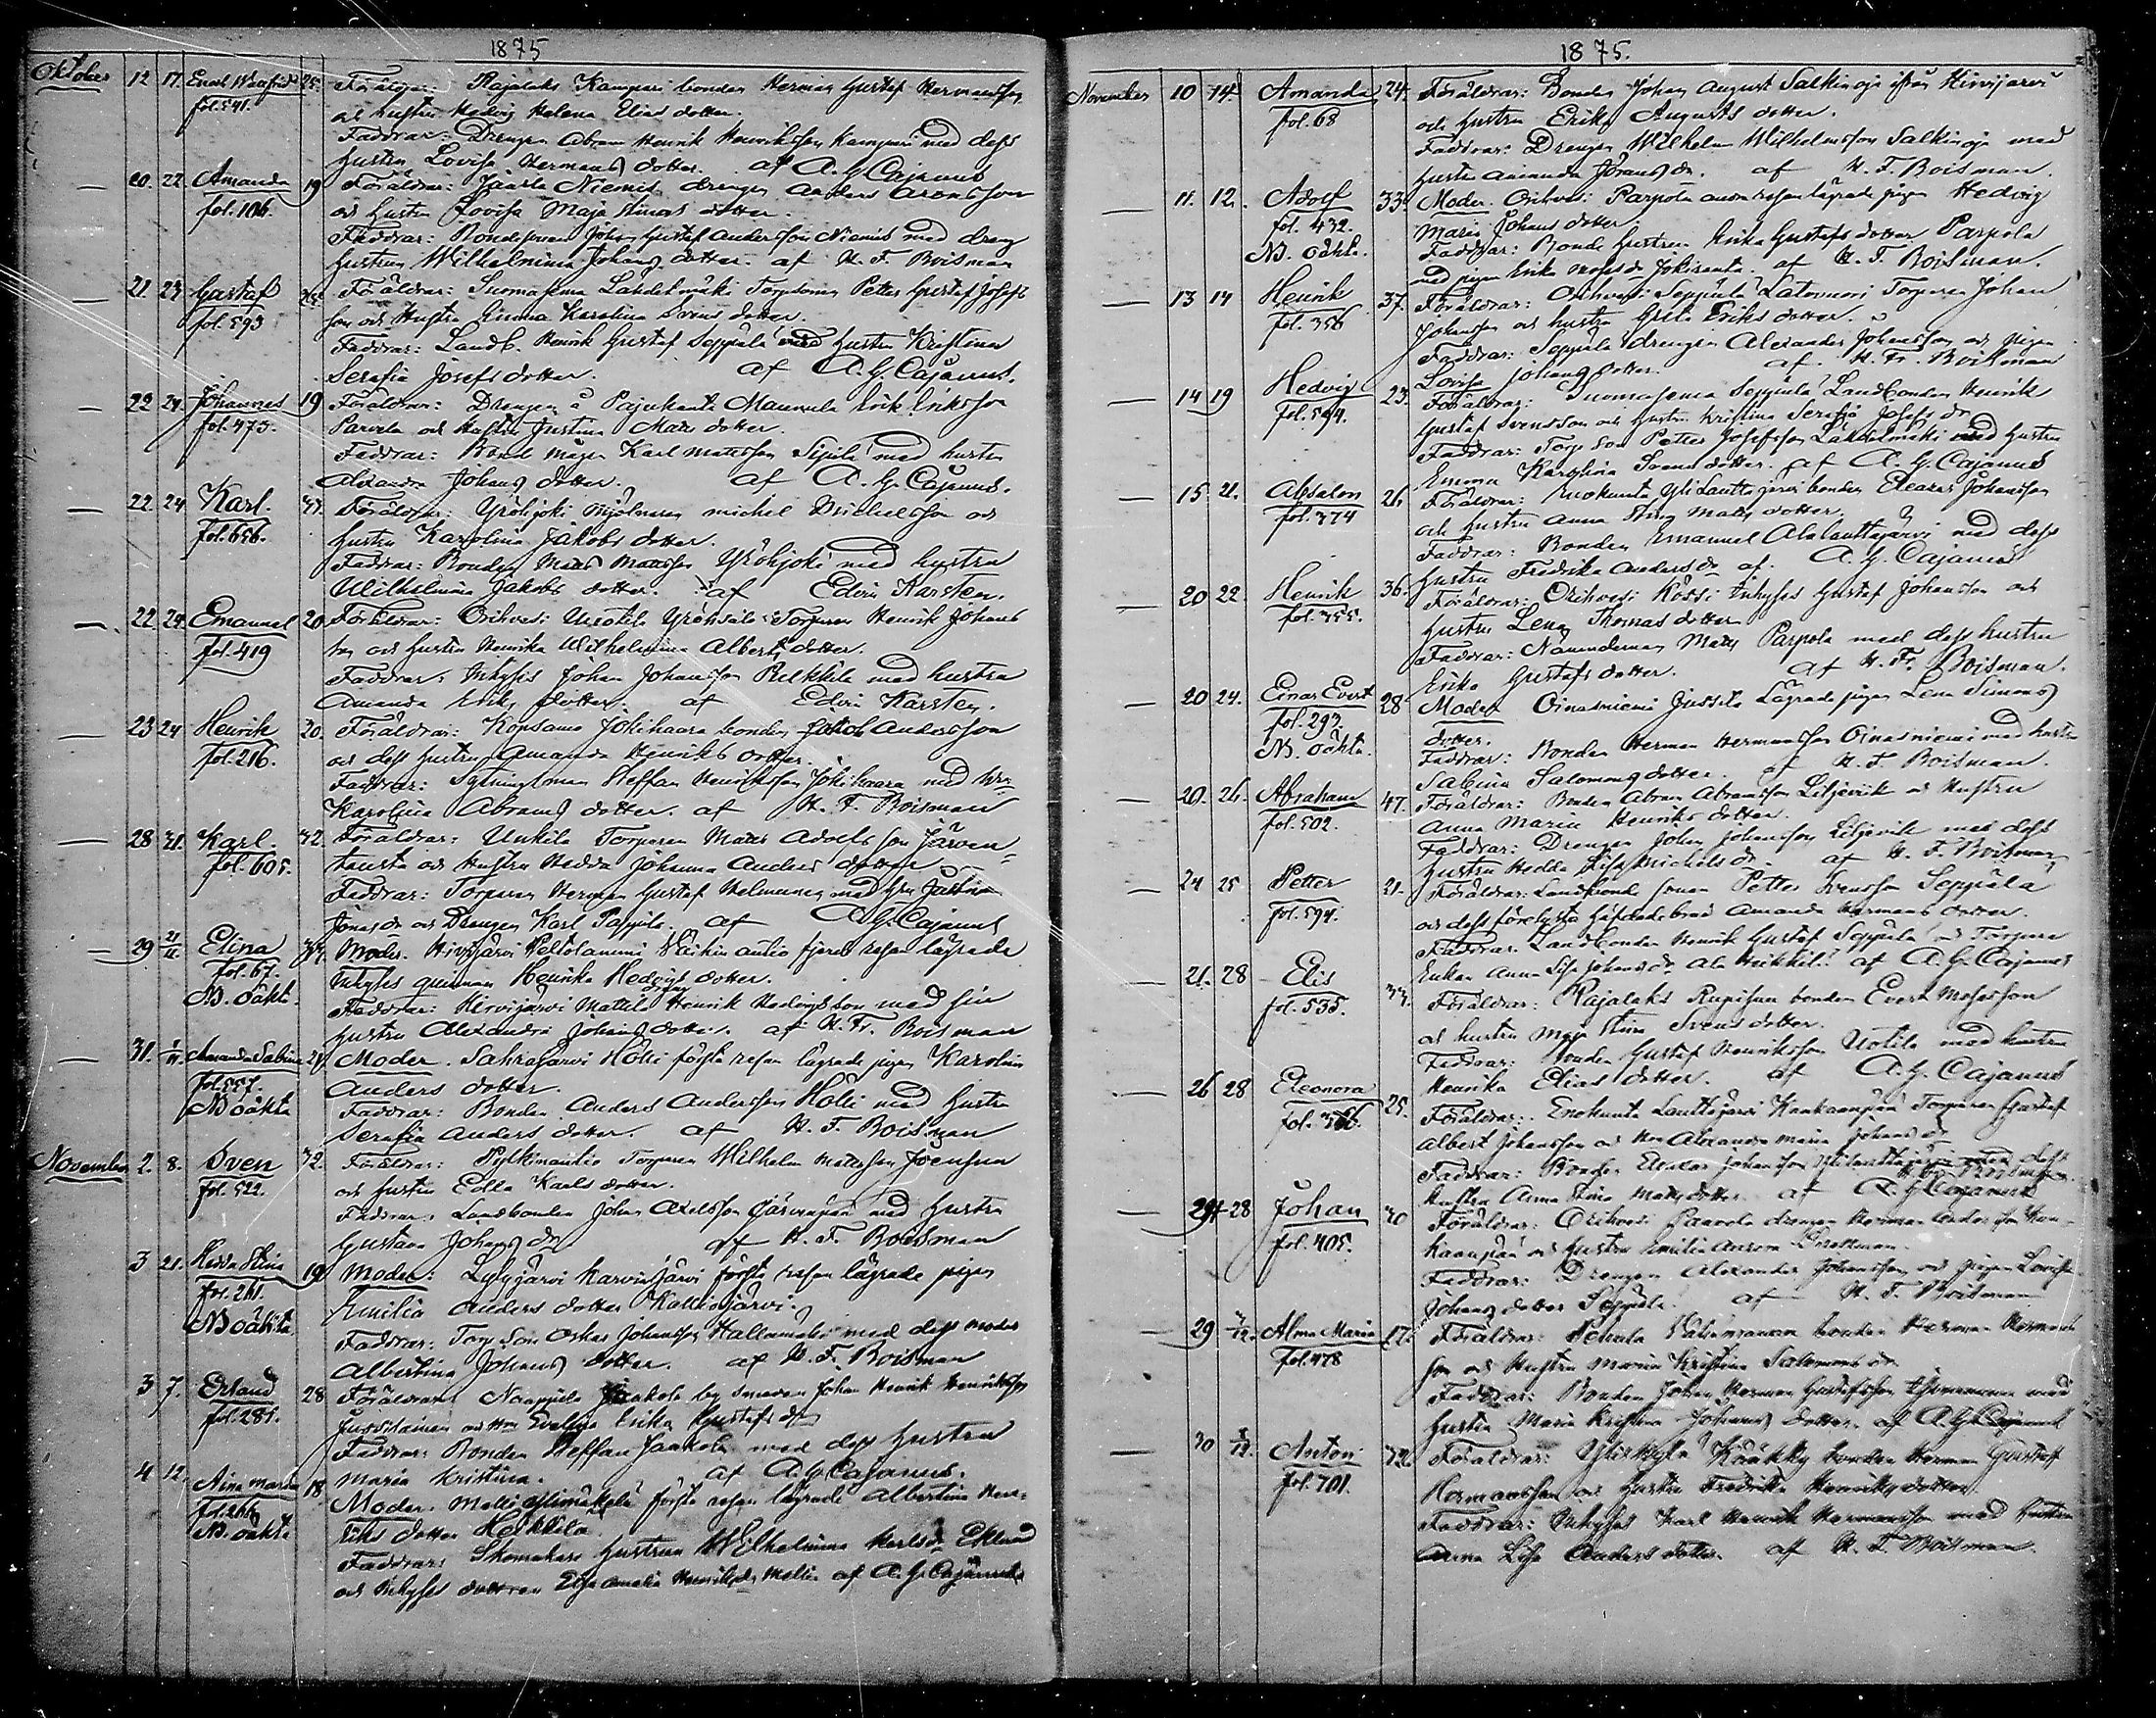 1875
Oktober 12 17. Enok Manfred 25. Föräldrar: Rajalaks Kamppari bonden Herman Gustaf Hermansson
fol. 541. och hustru Hedvig Helena Elias dotter.
Faddrar: Drengen Abram Henrik Henriksson Kamppari med dess
hustru Lovisa Hermans dotter. af A. G. Cajanus
— 20. 22. Amanda 19 Föräldrar: Niemis drengen Anders Aronsson
fol. 106. och hustru Lovisa Maja Simons dotter.
Faddrar: Bondesonen Johan Gustaf Andersson Niemis med dreng
hustrun Wilhelmina Johans dotter. af H. F. Boisman
— 21. 24 Gustaf Föräldrar: Suomasema Lähdekmäki Torpsonen Petter Gustaf Josefs
fol. 593 son och Hustru Emma Karolina Svens dotter.
Faddrar: Landb. Henrik Gustaf Seppälä med hustru Kristina
Serafia Josefs dotter. af A. G. Cajanus.
— 22 24. Johannes 19 Föräldrar: Drengen å Pajukanta Maunula Erik Eriksson
fol. 473. Parvela och Hustru Justina Mats dotter.
Faddrar: Bonde mågen Karl Matsson Sipilä med hustru
Alexandra Johans dotter. af A. G. Cajanus.
— 22. 24 Karl. Föräldrar: Yröhjoki Mjölnaren Michel Michelsson och
fol. 656. hustru Karolina Jakobs dotter.
Faddrar: Bonden Mats Matsson Yröhjoki med hustru
Wilhelmina Jakobs dotter. af Edvin Karsten.
— 22. 24. Emanuel 20 Föräldrar: Orihvesi Uusitalo Torparen Henrik Johans
fol. 419 son och hustru Henrika Wilhelmina Alberts dotter.
Faddrar: Inhyses Johan Johansson Pelkkilä med hustru
Amanda Eriks dotter. af Edvin Karsten.
— 23 24 Henrik 20. Föräldrar: Kopsamo Jokihaara bonden Jakob Andersson
fol. 216. och dess hustru Amanda Henriks dotter.
Faddrar: Sytningsman Steffan Henriksson Jokihaara med hru
Karolina Abrams dotter. af H. F. Boisman
— 28 31. Karl. 32. Föräldrar: Unkila Torparen Mats Adolfsson Järven-
fol. 605. tausta och Hustru Hedda Johanna Anders dotter
Faddrar: Torparen Herman Gustaf Helminen med hru Justina
Jonas dr och Drengen Karl Pappila. af A. G. Cajanus
— 29 21/11 Elina Moder. Hirvijärvi Peltolammi fjerde resan lägrade
fol. 67. Inhyses qvinnan Henrika Hedvigs dotter.
NB. oäkta. Faddrar: Hirvijärvi Mattila dreng Henrik Hedvigsson med sin
hustru Alexandra Johans dotter. af H. Fr. Boisman
— 31. 1/11 Amanda Sabina 24. Moder. Sahrajärvi Holli första resan lägrade pigan Karolina
fol. 557. Anders dotter.
NB oäkta Faddrar: Bonden Anders Andersson Holli med hustru
Serafia Anders dotter. af H. F. Boisman
November 2. 8. Sven 32. Föräldrar: Torparen Wilhelm Mattsson Joensuu
fol. 522. och hustru Edla Karls dotter.
Faddrar: Landbonden Johan Axelsson Järvenpää med hustru
Gustava Johans dr af H. F. Boisman
3 21. Hedda Stina 19 Moder: Lylyjärvi Karvinjärvi första resan lägrade pigan
fol. 261. Emilia Anders dotter Kalliojärvi.
NB oäkta Faddrar: Torp son Oskar Johansson Kallamäki med dess moder
Albertina Johans dotter. af H. F. Boisman
3 7. Erland 28 Föräldrar: Jaakola by smeden Johan Henrik Henriksson
fol. 285. Jussilainen och hru Evelina Erika Gustafs dr
Faddrar: Bonden Steffan Jaakola med dess hustru
Maria Kristina. af A. G. Cajanus.
4 12. Aina Maria 18 Moder. första resan lägrade Albertina Hen-
fol. 266 riks dotter Heikkilä
NB. oäkta Faddrar: Skomakare hustrun Wilhelmina Karls dr Eklund
och Inhyses dottren Elsa Amalia Henriks dr af A. G. Cajanus
1875.
November 10 14. Amanda 24. Föräldrar: Bonden Johan August Salkinoja ifrån Hirvijärvi
fol. 68 och hustru Erika Augusts dotter.
Faddrar: Drengen Wilhelm Wilhelmsson Salkinoja med
hustru Amanda Johans dr. af H. F. Boisman.
— 11. 12. Adolf 33. Moder. Orihvesi Parpola andra resan lägrade pigan Hedvig
fol. 432. Maria Johans dotter
NB. oäkta. Faddrar: Bonde hustrun Erika Gustafs dotter Parpola
med pigan Erika af H. F. Boisman.
— 13 14 Henrik 37. Föräldrar: Orihvesi Seppälä Latomeri Torparen Johan
fol. 356 Johansson och hustru Greta Eriks dotter.
Faddrar: Seppälä drengen Alexander Johansson och pigan
Lovisa Johans dotter. af H. Fr. Boisman
— 14 19 Hedvig 23. Föräldrar: Suomasema Seppälä Landbonden Henrik
fol. 594. Gustaf Svensson och hustru Kristina Serafia Josefs dr
Faddrar: Torp son Petter Josefsson Lähdekmäki med hustru
Emma Karolina Svens dotter. af A. G. Cajanus
— 15 21. Absalon 26. Föräldrar: Enokunta Yli Lauttajärvi bonden Eleazar Johansson
fol. 374 och hustru Anna Stina Mats dotter.
Faddrar: Bonden Emanuel Alalauttajärvi med dess
hustru Fredrika Anders dr af. A. G. Cajanus
— 20 22. Henrik 36. Föräldrar: Orihvesi Inhyses Gustaf Johansson och
fol. 355. hustru Lena Thomas dotter
Faddrar: Nämndeman Mats Parpola med dess hustru
Erika Gustafs dotter. af H. Fr. Boisman.
— 20 24. Einar Evert 28 Moder Oinasniemi Jussila Lägrade pigan Lena Simons
fol. 293. dotter.
NB. oäkta. Faddrar: Bonden Herman Hermansson Oinasniemi med hustru
Sabina Salomons dotter. af H. F Boisman.
— 20. 26. Abraham 47. Föräldrar: Bonden Abram Abramsson Liljevik och Hustru
fol. 502. Anna Maria Henriks dotter.
Faddrar: Drengen Johan Johansson Liljevik med dess
hustru Hedda Lisa Michels dr af H. F. Boisman
— 24 25 Petter 21. Föräldrar: Landbonde sonen Petter Svensson Seppälä
fol. 594. och dess förelysta Amanda Hermans dotter.
Faddrar: Landbonden Henrik Gustaf Seppälä och Torpare
Enkan Anna Lisa Johans dr Ala Mikkilä af A. G. Cajanus
— 21. 28 Elis 33. Föräldrar: Rajalaks bonden Evert Mosesson
fol. 535. och hustru Maja Stina Svens dotter.
Faddrar: Bonden Gustaf Henriksson Uotila med hustru
Henrika Elias dotter. af A. G. Cajanus
— 26 28 Eleonora 25. Föräldrar: Enokunta Lauttajärvi Kankaanpää Torparen Gustaf
fol. Albert Johansson och hru Alexandra Maria Johans dr
Faddrar: Bonden Eleazar Johansson Ylilauttajärvi med dess
Hustru Anna Stina Mats dotter af A. G. Cajanus
— 28 Johan 30 Föräldrar: Orihvesi Paavola drengen Herman Andersson Kan-
fol. 405. kaanpää och hustru Emilia
Faddrar: Drengen Alexander Johansson och pigan Lovisa
Johans dotter Seppälä. af H. F. Boisman
— 29 Alma Maria 17. Föräldrar: bonden Herman Hermans
fol. 478 son och Hustru Maria Kristina Salomons dr.
Faddrar: Bonden Johan Herman Gustafsson med
hustru Maria Kristina Johans dotter. af A. G. Cajanus
— 30 Anton 32. Föräldrar: Yliskylä bonden Herman Gustaf
fol. 701. Hermansson och hustru Fredrika Henriks dotter.
Faddrar: Inhyses Karl Henrik Hermansson med hustru
Anna Lisa Anders dotter. af H. F. Boisman.